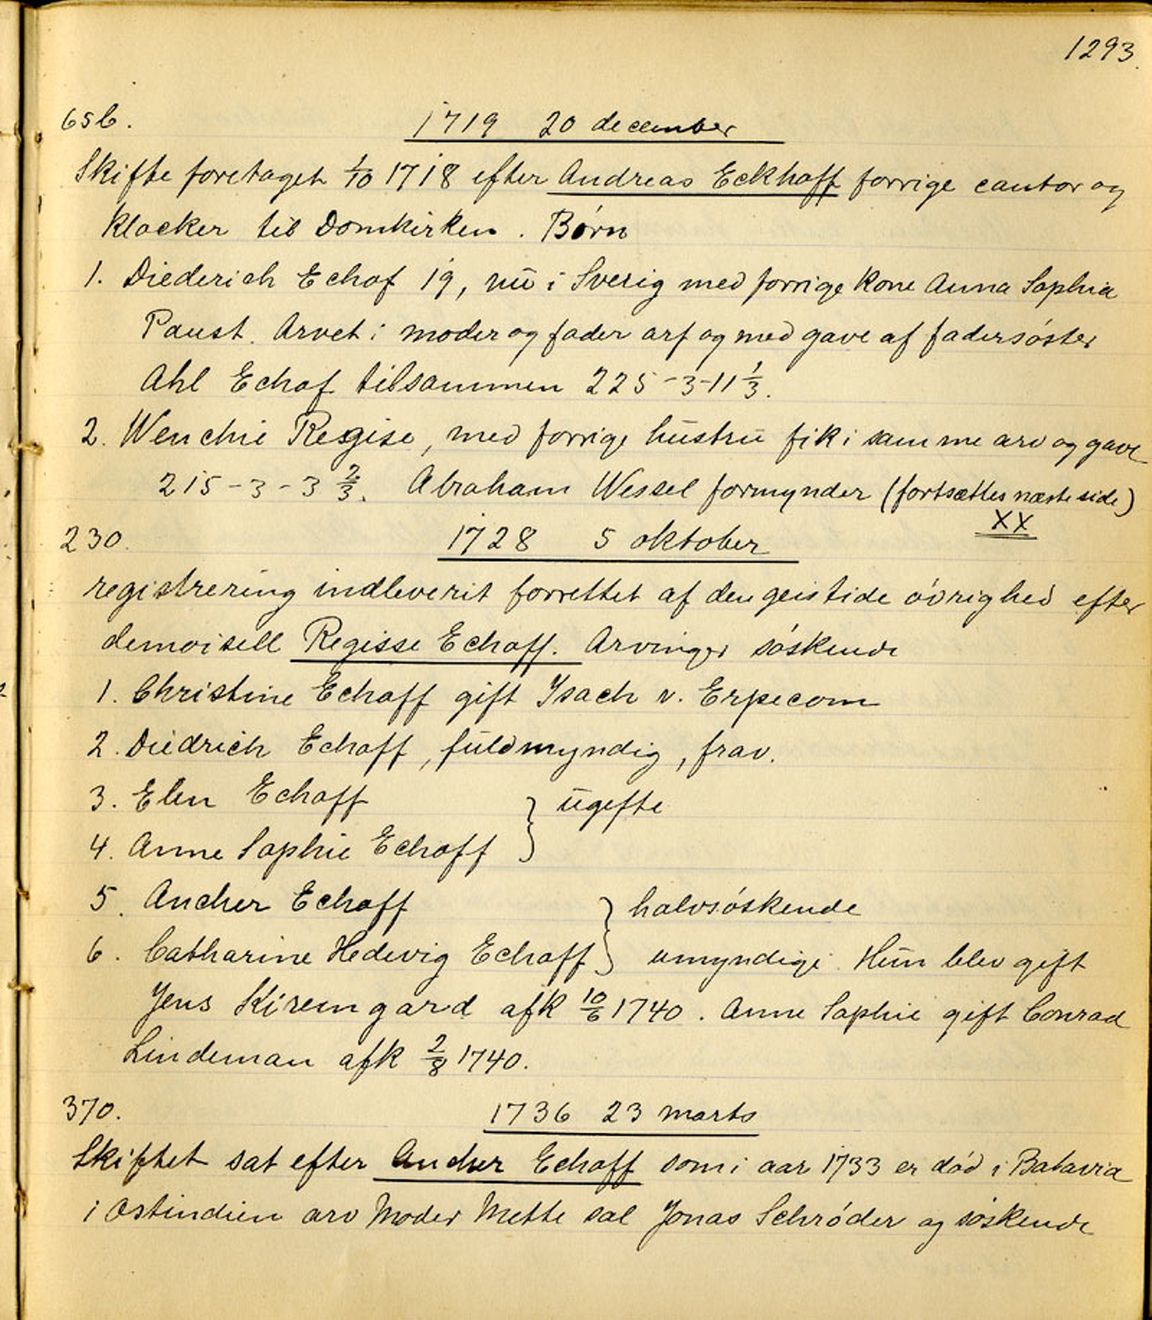 1293.
65b. 1719 20 december
Skifte foretaget 1/10 1718 efter Andreas Eckhoff forrige cantor og
klocker til Domkirken. Børn
1. Diederich Echof 19, nu i Sverig med forrige kone Anna Sophia
Paust. Arvet i moder og fader arf og med gave af fadersøster
Ahl Echof tilsammen 225-3-11 1/3.
2. Wenche Regise, med forrige hustru fik i samme arv og gave
215-3-3 2/3. Abraham Wessel formynder (fortsættes næste side)
XX
230. 1728 5 oktober
registrering indleverit forrettet af den geistide øvrighed efter
demoisell Regisse Echoff. Arvinger søskende
1. Christine Echoff gift Ysach v. Erpecom
2. Diedrich Echoff, fuldmyndig, frav.
3. Elen Echoff } ugefte
4. Anne Sophie Echoff
5. Ancher Echoff } halvsøskende
6. Catharine Hedevig Echoff umyndige. Hun blev gift
Jens Kiremgard afk 10/6 1740. Anne Sophie gift Conrad
Lindeman afk 2/8 1740.
370. 1736 23 marts
Skiftet sat efter Ancher Echoff som i aar 1733 er død i Batavia
i Ostindien arv Moder Mette sal Jonas Schrøder og søskende